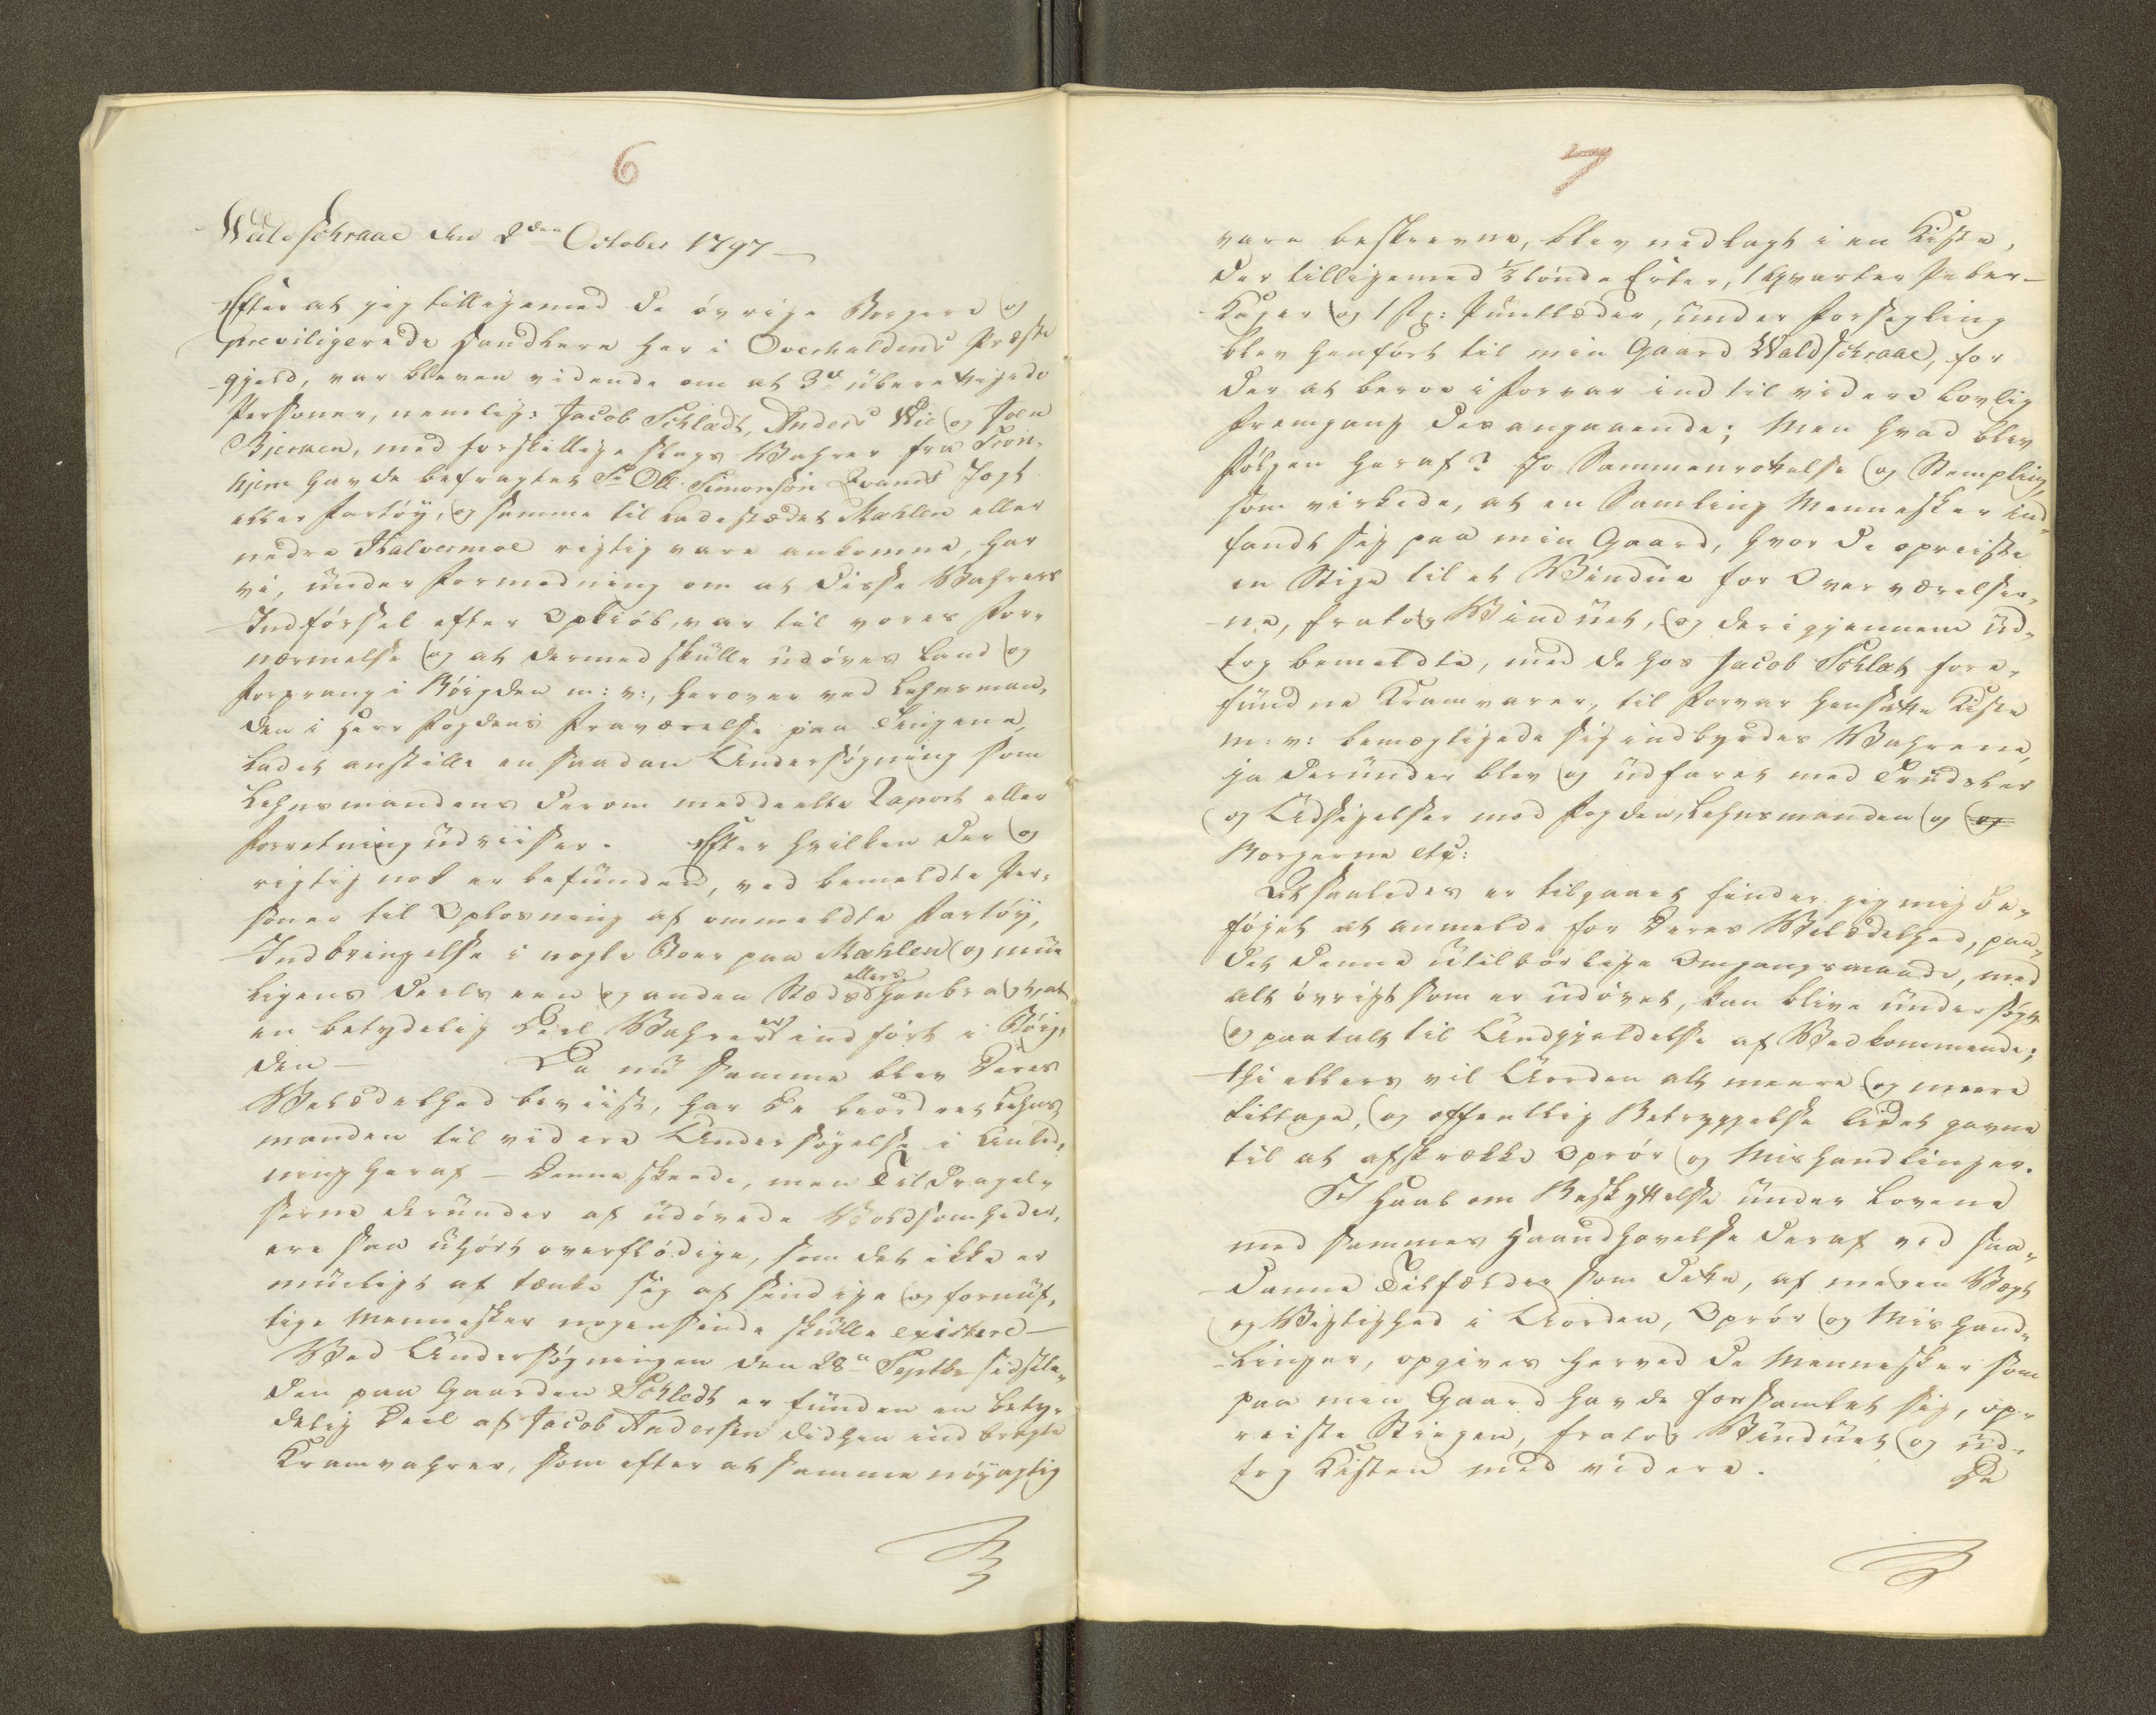 6
Waldschraae den 2den October 1797
Efter at jeg tilligemed de øvrige Borgere og
previligerede Handlere her i Overhaldens Præste
gjeld, var bleven vidende om at 3de uberettigede
Personer, nemlig: Jacob Schladt, Anders Wie og Joen
Bjerken, med forskillige slags Wahrer fra Tron-
hjem havde befragtet Sr Ole Simonsøn Qvands Jagt
eller Fartøy, og samme til Ladestædet Mahlen eller
nedre Kalvermoe rigtig vare ankomne, har
vi, under Formodning om at disse Wahrers
Indførsel efter Opkiøb, var til vores For-
nærmelse og at dermed skulle udøves Land og
Forprang i Bøigden m: v:, herover ved Lehnsman-
den i Herr Fogdens Fraværelse paa Tingene,
ladet anstille en saadan Undersøgning som
Lehnsmandens derom meddeelte Raport eller
Forretning udviiser. Efter hvilken der og
rigtig nok er befunden, ved bemeldte Per-
soner til Oplosning af ommeldte Fartøy,
Indbringelse i nogle Boer paa Mahlen og mue
ligens deels een og anden Stæds ellers henbragt, at
en betydelig Deel Wahrer er indført i Bøig-
den — Da nu samme blev Deres
Welædelhed beviist, har De beordret Lehns
manden til videre Undersøgelse i Anled-
ning heraf — Denne skeede, men Tildragel-
serne derunder af udøvede Voldsomheder,
ere saa uhørt overflødige, som det ikke er
mueligt at tænke sig af sindige og fornuf-
tige Mennesker nogensinde skulle existere —
Wed Undersøgningen den 28de Septbr sidstle-
den paa Gaarden Schledt er funden en bety-
delig Deel af Jacob Andersen didhen indbragte
Kramvahrer, som efter at samme nøyagtig
7
vare beskrevne, blev nedlagt i en Kiste,
der tilligemed 1/2 tønde Erter, 1 Qvarter Peber-
Kager og 1 st: Puntlæder, under Forsegling
blev henført til min Gaard Waldschraae, for
der at beroe i Forvar indtil videre lovlig
Fremgang desangaaende; Men hvad blev
Følgen heraf? Jo Sammenrottelse og Stempling,
som virkede, at en Samling Mennesker ind-
fandt sig paa min Gaard, hvor de opreiste
en Stige til et Windue for Overværelser-
ne, fratog Winduet, og derigjennem ud-
tog bemeldte, med de hos Jacob Schlat fore-
fundne Kramvarer, til Forvar hensatte Kiste
m: v: bemægtigede sig indbyrdes Wahrene,
ja derunder blev og udfaret med Trudsler
og Udsigelser mod Fogden, Lehnsmanden og og
Borgerne etc:
At saaledes er tilgaaet finder jeg mig be-
føget at anmelde for Deres Welædelhed, paa
det denne utilbørlige Omgangsmaade, med
alt øvrigt som er udøvet, kan blive undersøgt
og paatalt til Undgjeldelse af Wedkommende;
thi ellers vil Uorden alt meere og meere
tiltage, og offentlig Betryggelse lidet gavne
til at afskrække Oprør og Mishandlinger.
I Haab om Beskyttelse under Lovene
med sammes Haandhævelse deraf ved saa-
danne Tilfælder som dette, af megen Vægt
og Wigtighed i Uorden, Oprør og Mishand-
linger, opgives herved de Mennesker som
paa min Gaard havde forsamlet sig, op-
reiste Stiegen, fratog Winduet og ud-
tog Kisten med videre.
De